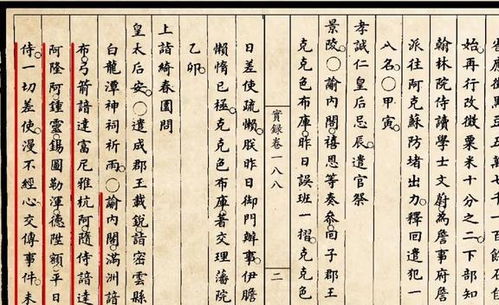 始。再行改徵粟米十分之二。下部知
翰林院侍讀學士文蔚爲詹事府詹
派往阿克蘇防堵出力。釋回遣犯一
八名。○甲寅。
孝誠仁皇后忌辰。遣官祭
景陵。○諭內閣。禧恩等奏參回子郡王
克克色布庫。昨日誤班一摺。克克色
實錄卷一八八
二
日差使疏懶。朕昨日御門辦事。伊膽
懶惰已極。克克色布庫著交理藩院
乙卯。
上詣綺春園問
皇太后安。○遣成郡王載銳詣密雲縣
白龍潭神祠祈雨。○諭內閣。滿洲諳
布。弓箭諳達富尼雅杭阿。隨侍諳達
阿隆阿。鍾靈。錫圖勒渾。德陞額。平日
侍一切差使。漫不經心。交傳事件。未